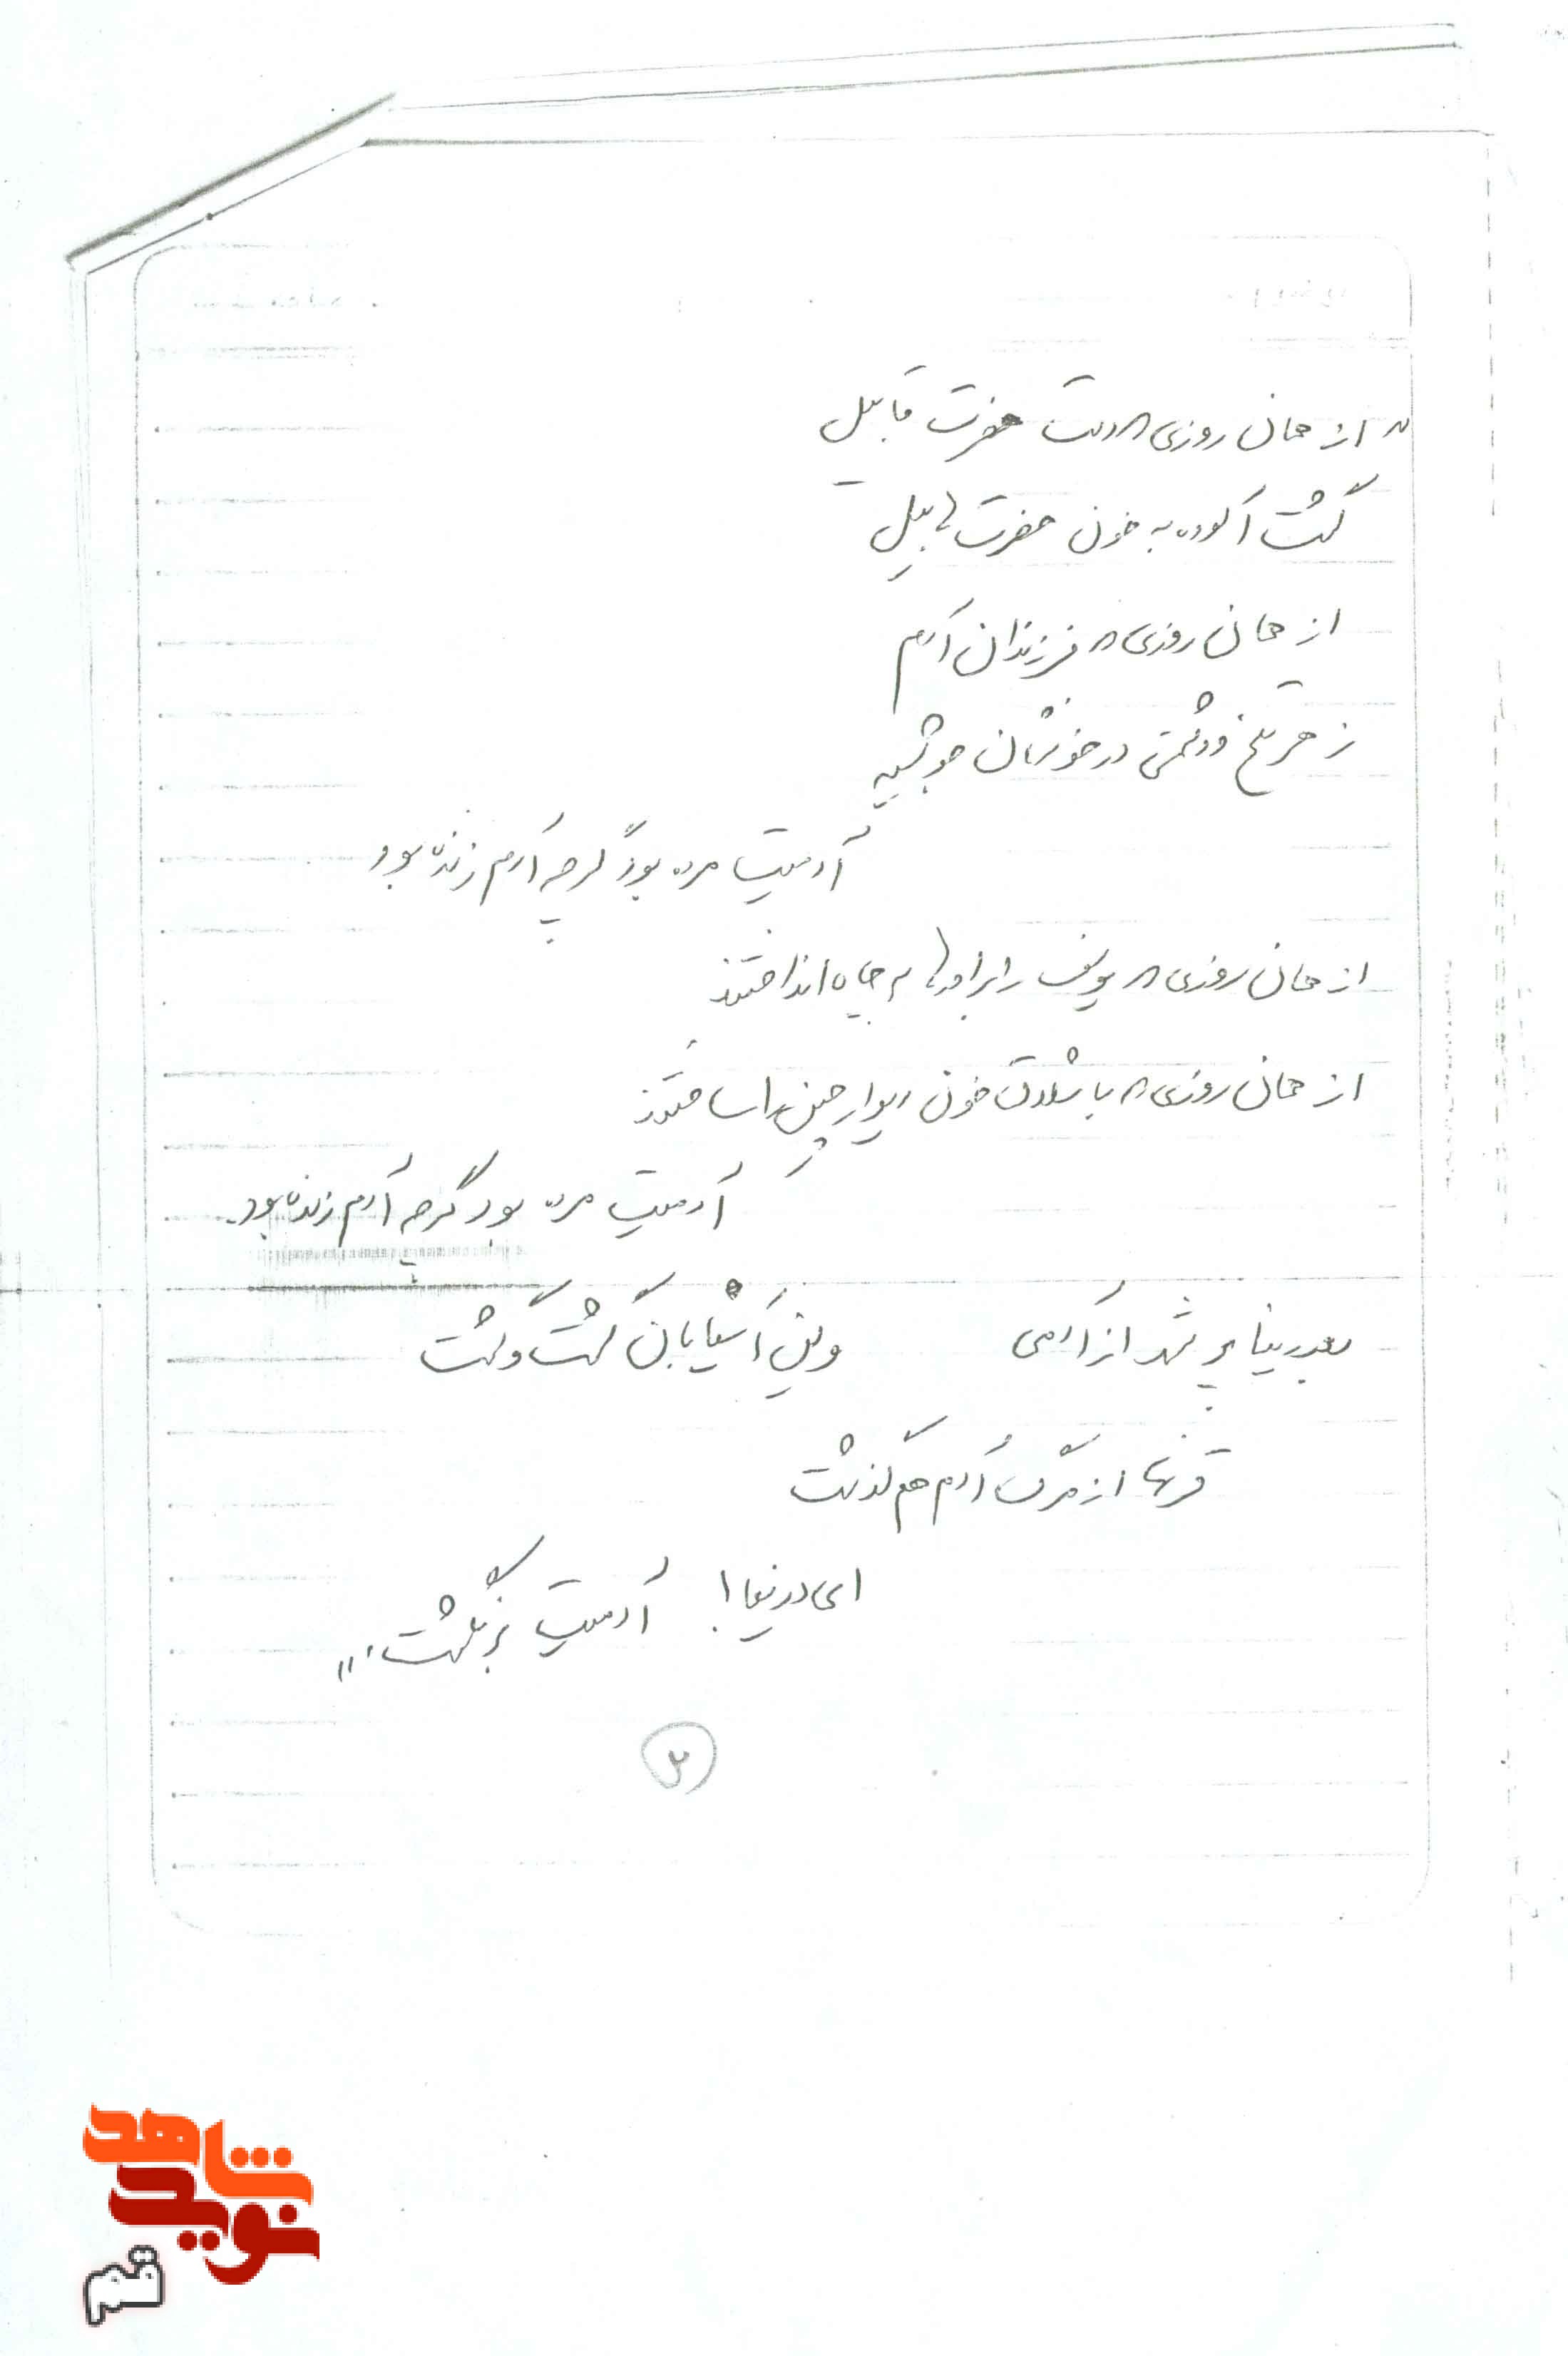 "از همان روزی که دست حضرت قابیل
گشت آلوده به خون حضرت هابیل
از همان روزی که فرزندان آدم
زهر تلخ دشمنی در خونشان جوشید
آدمیت مرده بود گرچه آدم زنده بود
از همان روزی که یوسف را برادرها به چاه انداختند
از همان روزی که با شلاق خون دیوار چین را ساختند
آدمیت مرده بود گرچه آدم زنده بود.
بعد دنیا پر شد از آدمی وین آسیابان گشت و گشت
قرنها از مرگ آدم هم گذشت
ای دریغا! آدمیت برنگشت."
شاهد
نوید
قم